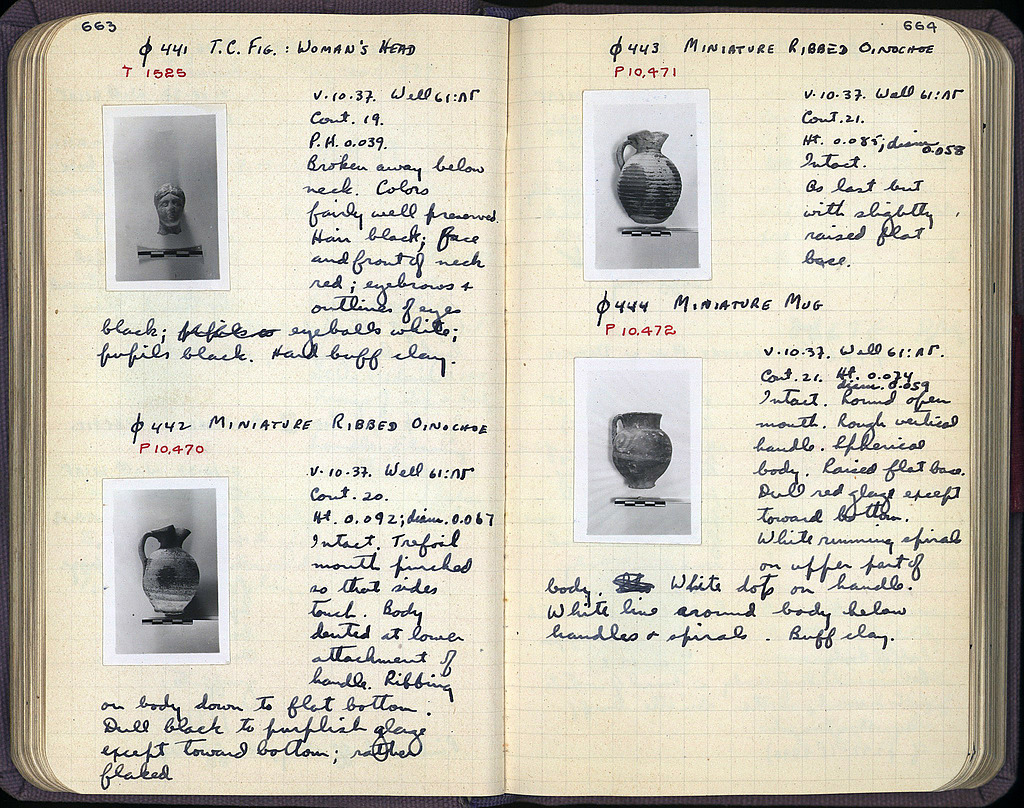 663
ϕ 441 T.C. FIG. : WOMAN'S HEAD
T 1525
V·10·37. Well 61:ΛΓ
Cont. 19.
P.H. 0.039.
Broken away below
neck. Colors
fairly well preserved.
Hair black; face
and front of neck
red; eyebrows +
outlines of eyes
black; eyeballs white;
pupils black. Hard buff clay.
ϕ 442 MINIATURE RIBBED OINOCHOE
P 10,470
V·10·37. Well 61:ΛΓ
Cont. 20.
Ht. 0.092; diam. 0.067
Intact. Trefoil
mouth pinched
so that sides
touch. Body
dented at lower
attachment of
handle. Ribbing
on body down to flat bottom.
Dull black to purplish glaze
except toward bottom; rather
flaked
664
ϕ 443 MINIATURE RIBBED OINOCHOE
P 10,471
V·10·37. Well 61:ΛΓ
Cont. 21.
Ht. 0.085; diam. 0.058
Intact.
As last but
with slightly
raised flat
base.
ϕ 444 MINIATURE MUG
P 10,472
V·10·37. Well 61:ΛΓ.
Cont. 21. Ht. 0.074
diam. 0.059
Intact. Round open
mouth. Rough vertical
handle. Spherical
body. Raised flat base.
Dull red glaze except
toward bottom.
White running spirals
on upper part of
body. White dots on handle.
White line around body below
handles + spirals. Buff clay.